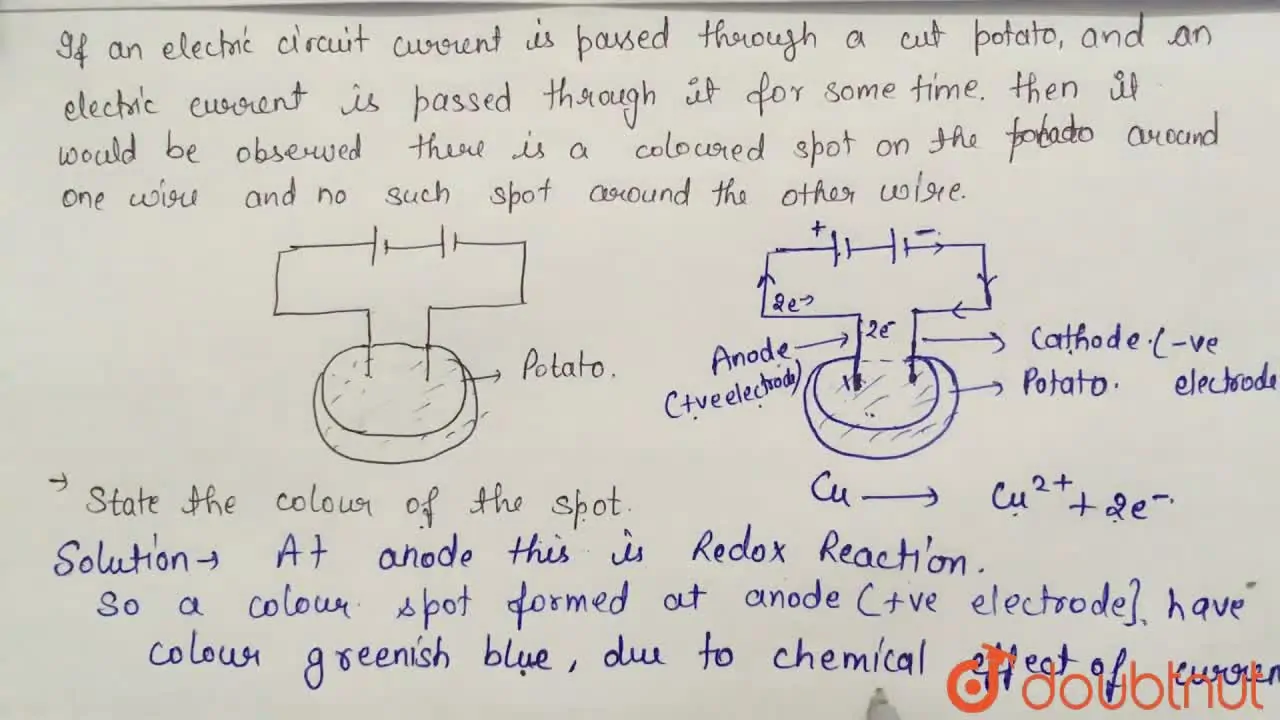 If an electric circuit current is passed through a cut potato, and an
electric current is passed through it for some time. then it
would be observed there is a coloured spot on the potato around
one wire and no such spot around the other wire.
Potato.
+ -
2e-
2e-
Anode
(+ve electrode)
Cathode (-ve
electrode
Potato.
→ State the colour of the spot.
Cu → Cu2+ + 2e-.
Solution → At anode this is Redox Reaction.
So a colour spot formed at anode (+ve electrode]. have
colour greenish blue, due to chemical effect of curren
doubtnut